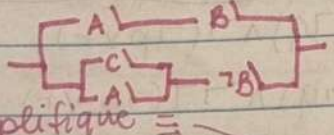 A B
C
A ¬B
plifique =